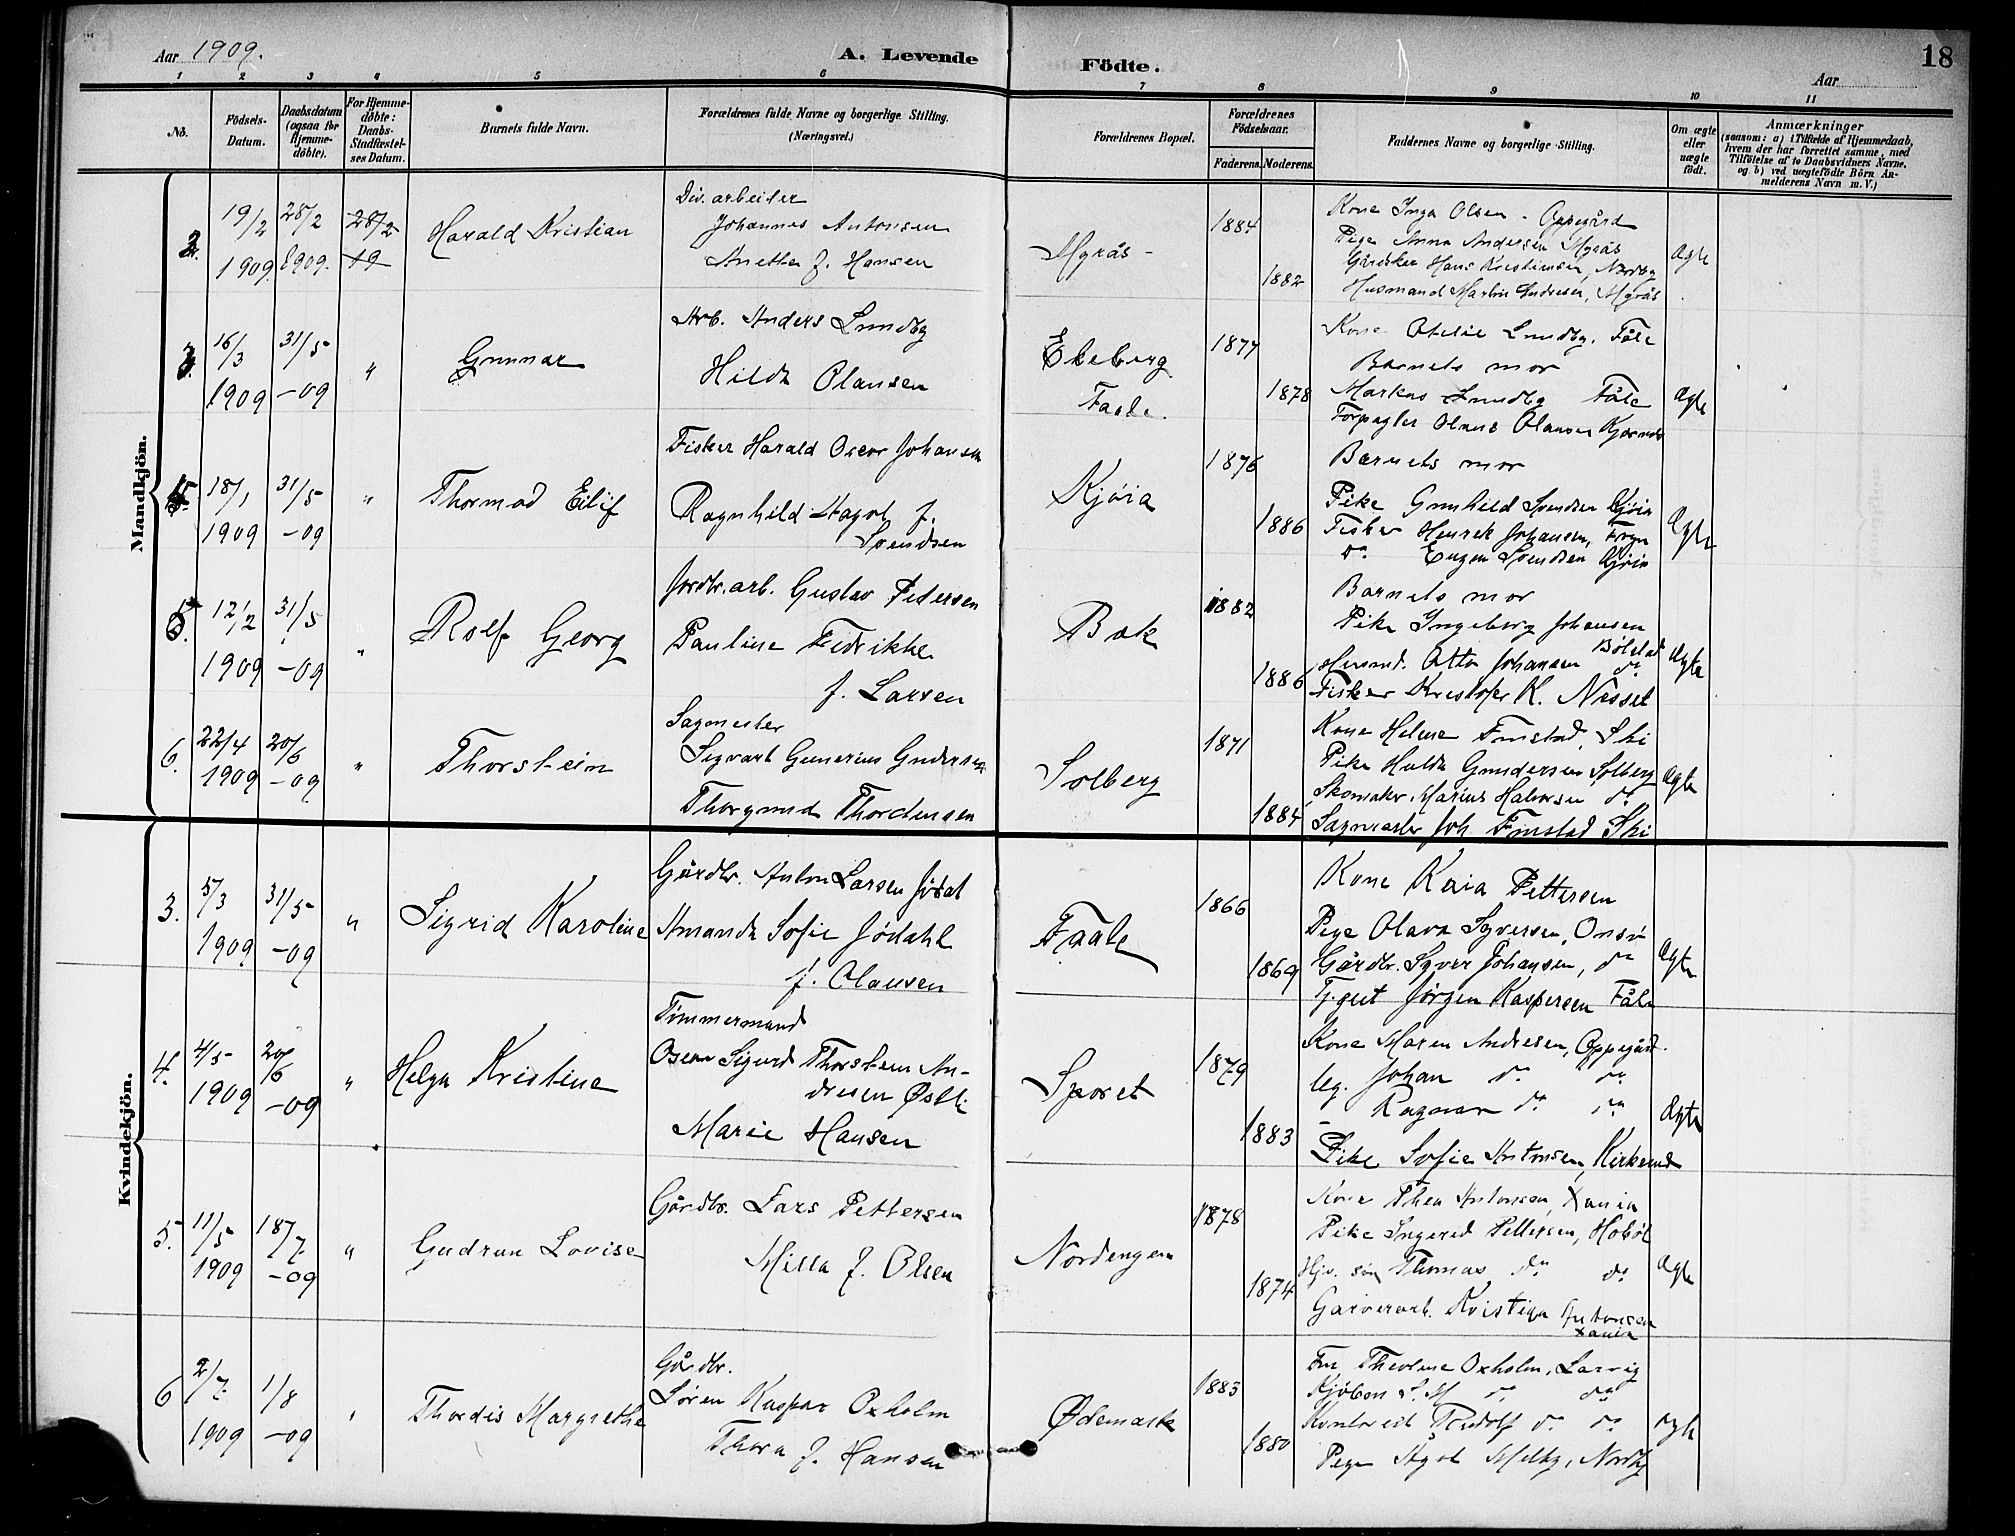 Aar 1909.
A. Levende Födte.
18
Aar
1 2 3 4 5 6 7 8 9 10 11
No.
Födsels-Datum.
Daabsdatum (ogsaa for Hjemme-döbte).
For Hjemme-döbte: Daabs-Stadfæstel-ses Datum.
Barnets fulde Navn.
Forældrenes fulde Navne og borgerlige Stilling.
(Næringsvei.)
Forældrenes Bopæl.
Forældrenes Födselsaar.
Faderens. Moderens.
Faddernes Navne og borgerlige Stilling.
Om ægte eller uægte födt.
Anmærkninger
(saasom: a) i Tilfælde af Hjemmedaab,
hvem der har forrettet samme, med
Tilföielse af to Daabsvidners Navne,
og b) ved uægtefödte Börn An-
melderens Navn m. V.)
Mandkjön.
2. 19/2 1909 28/2 1909. 28/2 19
Harald Kristian
Div. arbeiter
Johannes Antonsen
Anette f. Hansen
Myrås -
1884
1882
Kone Inga Olsen - Oppegård
Pige Anna Andersen Myrås
Hans Kristiansen, Nordby
Husmand Martin Andresen, Myrås
Ægte
3. 16/3 1909 31/5 -09 "
Gunnar
Arb. Anders Lundby
Hilda Olausen
Ekeberg
Faale.
1877
1878
Kone Otelie Lundby, Fåle
Barnets mor
Markus Lundby Fåle
Forpagter Olausen
Ægte
18/1 1909 31/5 -09 "
Thormod Eilif
Fisker Harald Oscar Johansen
Ragnhild Hagot f.
Svendsen
Kjöia
1876
1886
Barnets mor
Pike Gunhild Svendsen Kjöia
Fisker Henrik Johansen, Frogn
do Eugen Svendsen Kjöia
Ægte
5. 12/2 1909 31/5 -09 "
Rolf Georg
Jordbr.arb. Gustav Pedersen
Pauline Fredrikke
f. Larsen
Bak
1882
1886
Barnets mor
Pike Ingeborg Johansen
Bölstad
Husmd. Otto Johansen do
Fisker Kristofer K. Nesset
Ægte
6. 22/4 1909 20/6 -09 "
Thorstein
Sagmester
Sigvart Gunerius Gundersen
Thorgund Thordensen
Solberg
1871
1884
Kone Helene Finstad, Ski
Pike Hulda Gundersen Solberg
Skomaker Marius Halvorsen do
Sagmester Joh Finstad Ski
Ægte
Kvindekjön.
3. 5/3 1909 31/5 -09 "
Sigrid Karoline
Gårdbr. Anton Larsen Jödal
Amanda Sofie Jödahl
f. Olausen
Faale
1866
1869
Kone Kaia Pettersen
Pige Olava Syversen, Onsö
Gårdbr. Syver Johansen, do
Tj.gut Jörgen Kaspersen Fåle
Ægte
4. 4/5 1909 20/6 -09 "
Helga Kristine
Tömmermand
Oscar Sigurd Thorstein An-
dresen Østli
Marie Hansen
Sporet
1879
1883
Kone Maren Andresen, Oppegård.
Ug. Johan do do
- Ragnar do do
Pike Sofie Antonsen, Kirkerud
Ægte
5. 11/5 1909 18/7 -09 "
Gudrun Lovise
Gårdbr. Lars Pettersen
Milla f. Olsen
Nordengen
1878
1874
Kone Thea Antonsen, Xania
Pike Ingerid Pettersen, Hobøl
Hjv. søn Thomas do do
Garverarb. Kristian Antonsen
Xania
Ægte
6 2/7 1909 1/8 -09 "
Thordis Margrethe
Gårdbr.
Søren Kaspar Oxholm
Thora f. Hansen
Ødemark
1883
1880
Fru Theoline Oxholm, Larvig
Kjöbm S. M do do
Kontorist Rudolf do do
Pige Melby, Nordby
Ægte